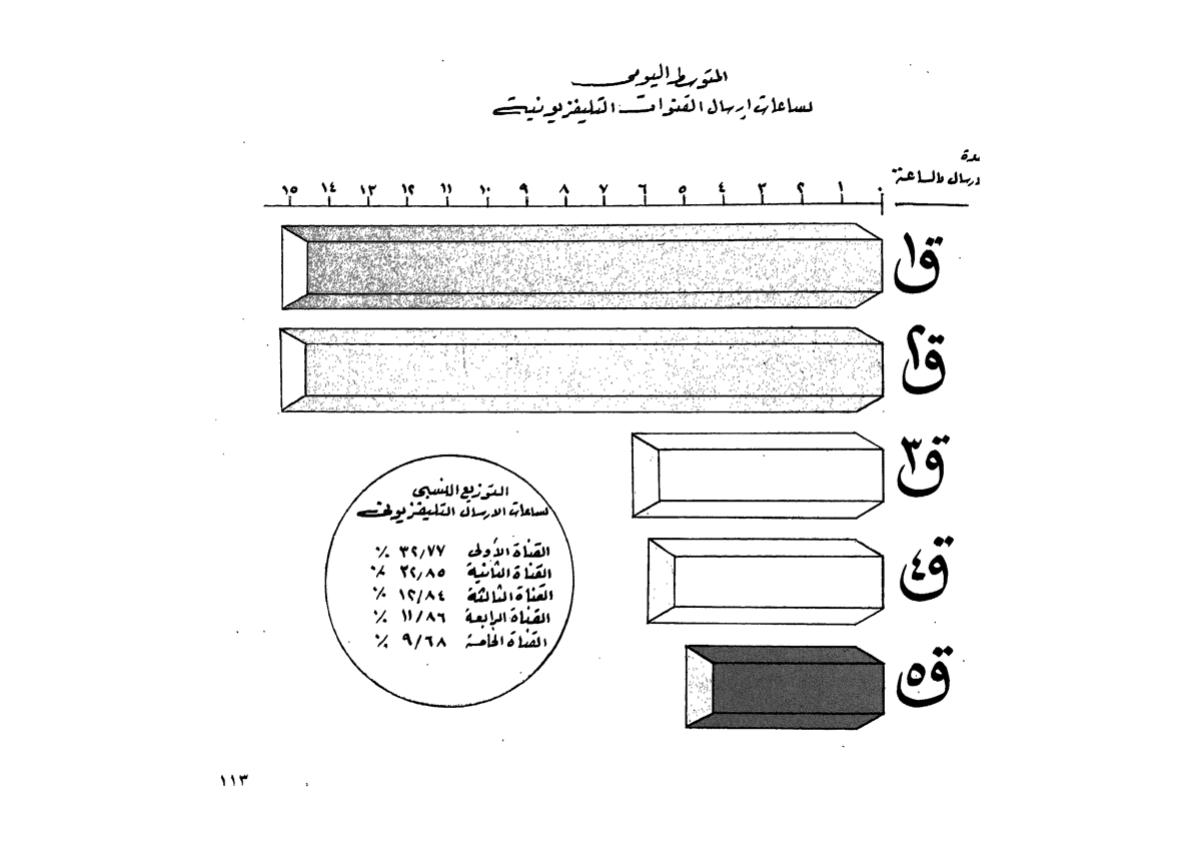 المتوسط اليومى
لساعات إرسال القنوات التليفزيونية
مدة
رسال بالساعة
٠ ١ ٢ ٣ ٤ ٥ ٦ ٧ ٨ ٩ ١٠ ١١ ١٢ ١٣ ١٤ ١٥
ق١
ق٢
ق٣
ق٤
ق٥
التوزيع النسبى
لساعات الارسال التليفزيونى
القناة الأولى ٣٢٫٧٧ ٪
القناة الثانية ٣٢٫٨٥ ٪
القناة الثالثة ١٢٫٨٤ ٪
القناة الرابعة ١١٫٨٦ ٪
القناة الخامسة ٩٫٦٨ ٪
١١٣